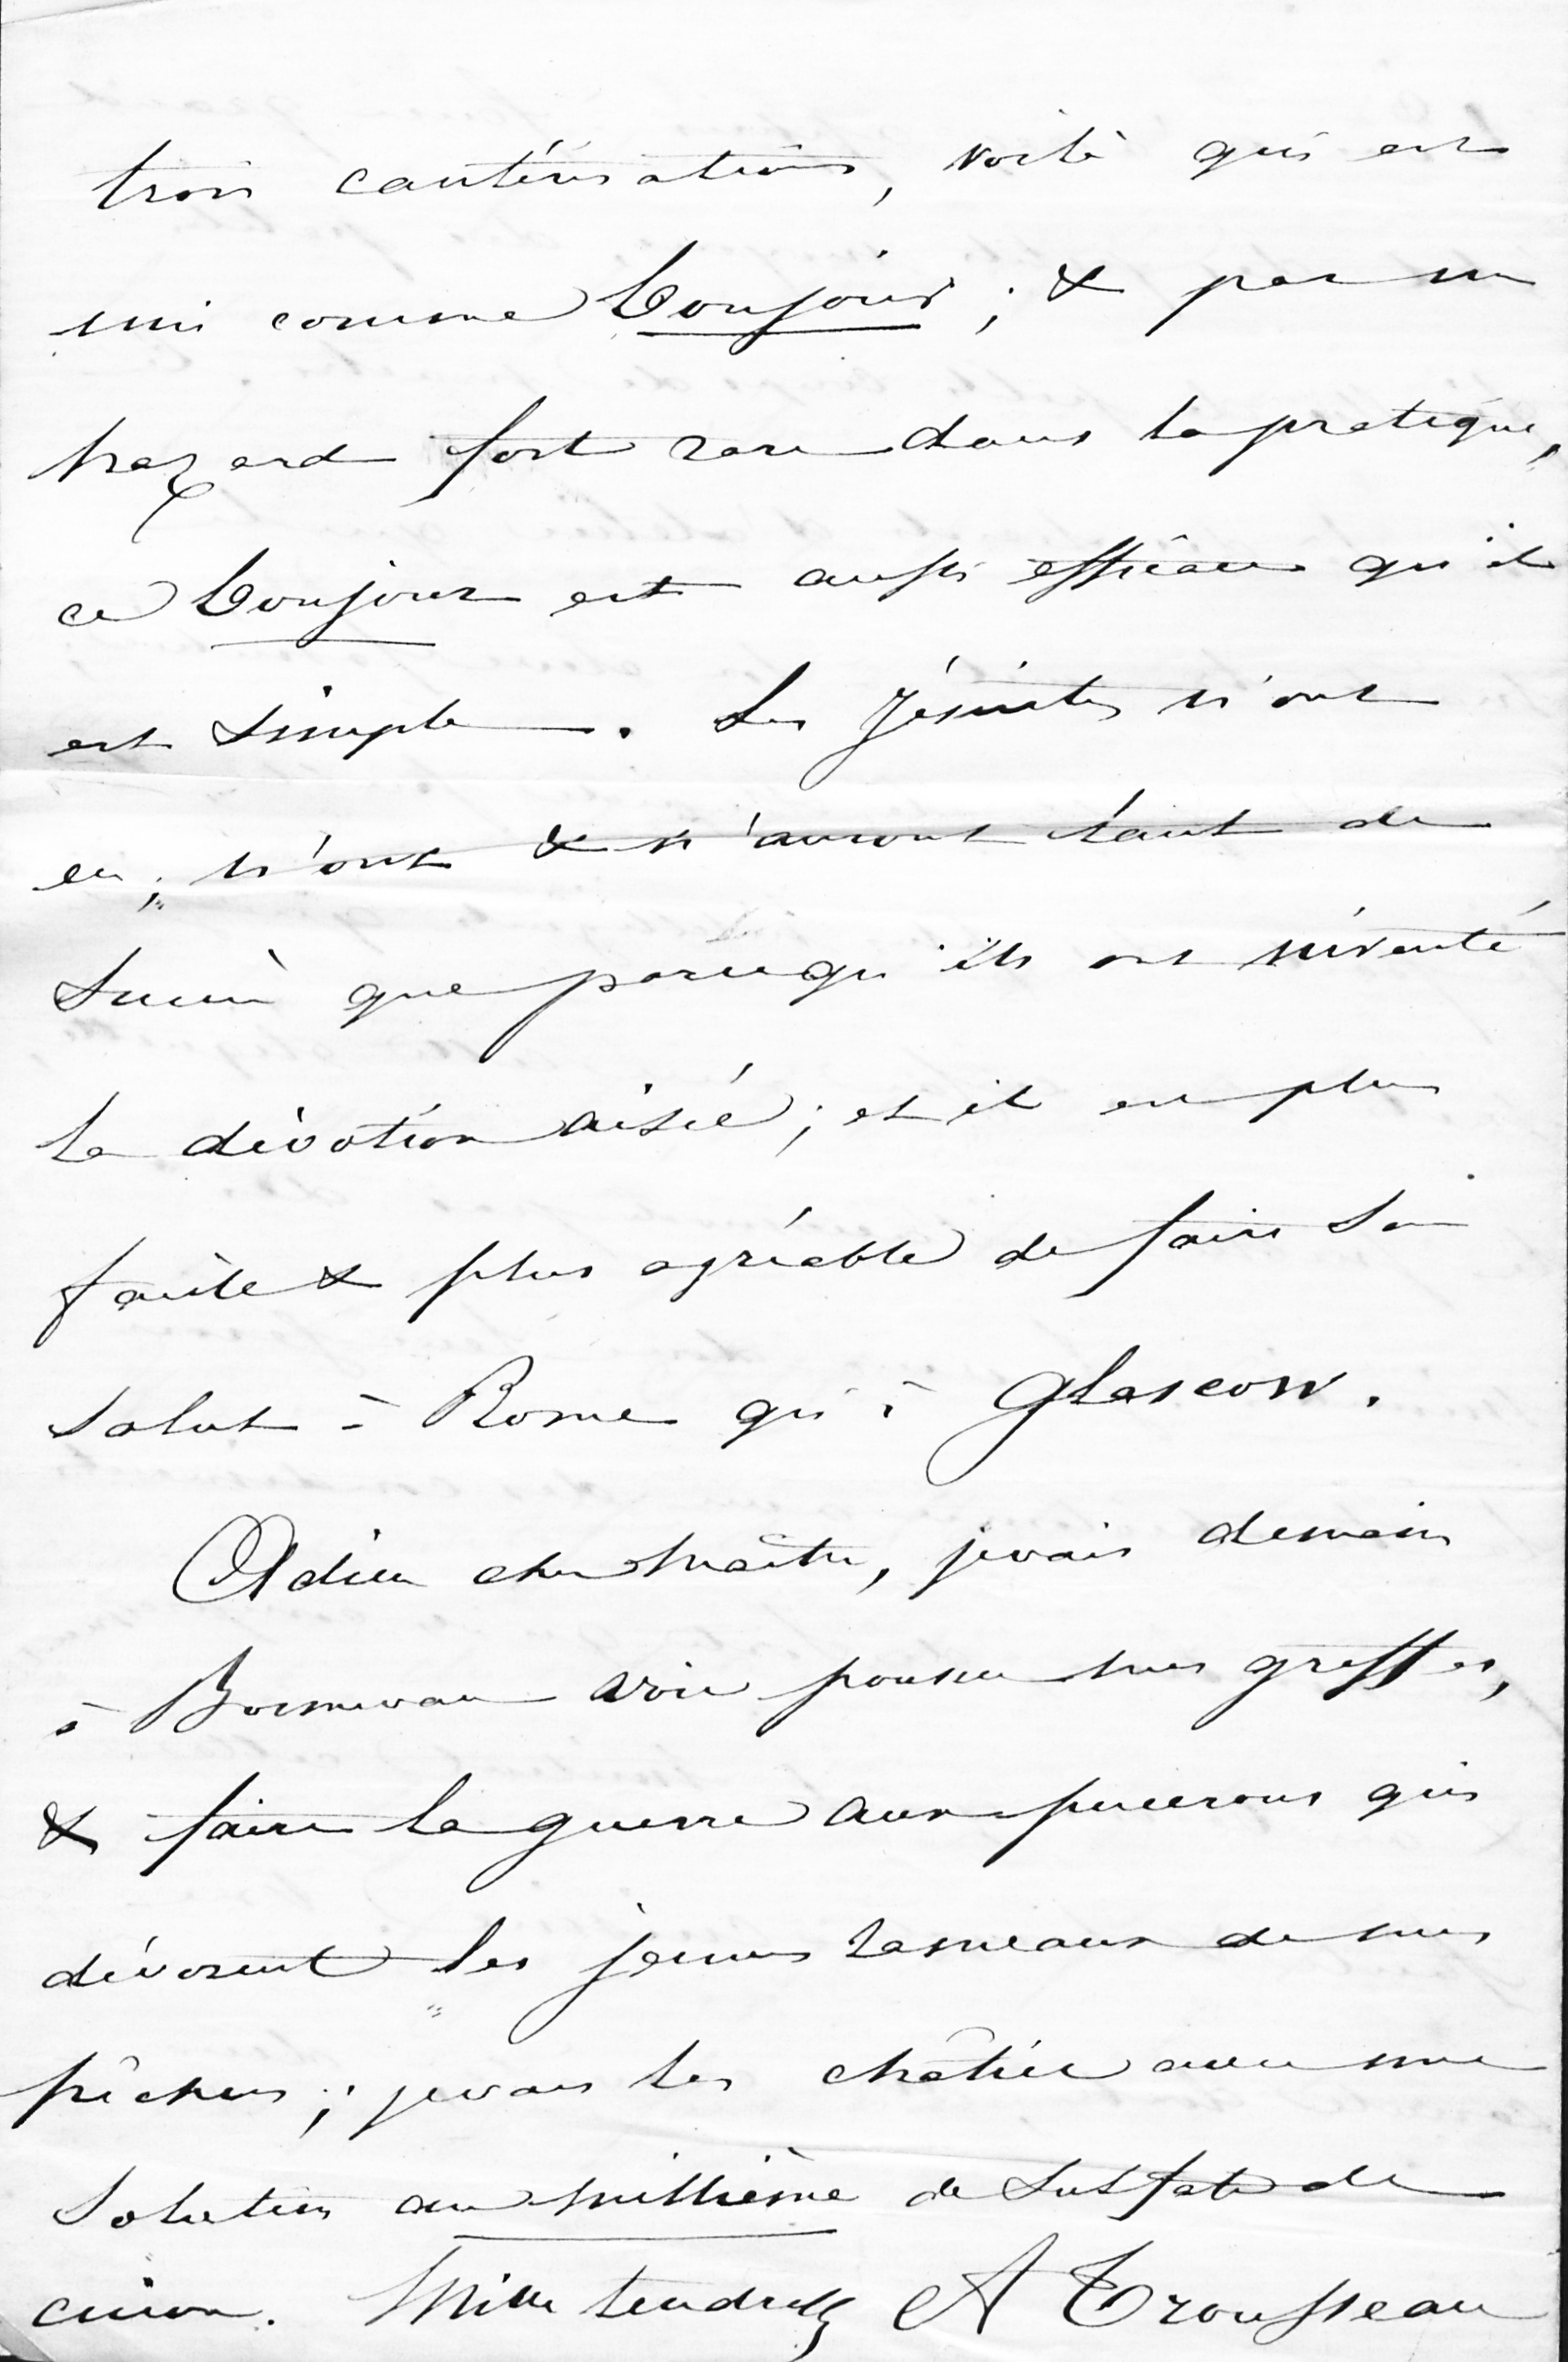 trois cautérisations, voilà qui est
uni comme bonjour ; & par un
hazard fort rare dans la pratique,
ce bonjour est aussi efficace qu'il
est simple. Les Jésuites n'ont
eu, n'ont & n'auront tant de
succès que parcequ'ils ont inventé
la dévotion aisée ; et il est plus
facile & plus agréable de faire son
salut à Rome qu'à Glascow.
Adieu cher maître, je vais demain
à voir pousser mes greffes,
& faire la guerre aux pucerons qui
dévorent les jeunes rameaux de mes
pêchers ; je vais les châtier avec une
solution au millième de sulfate de
cuivre. Mille tendresses A Trousseau